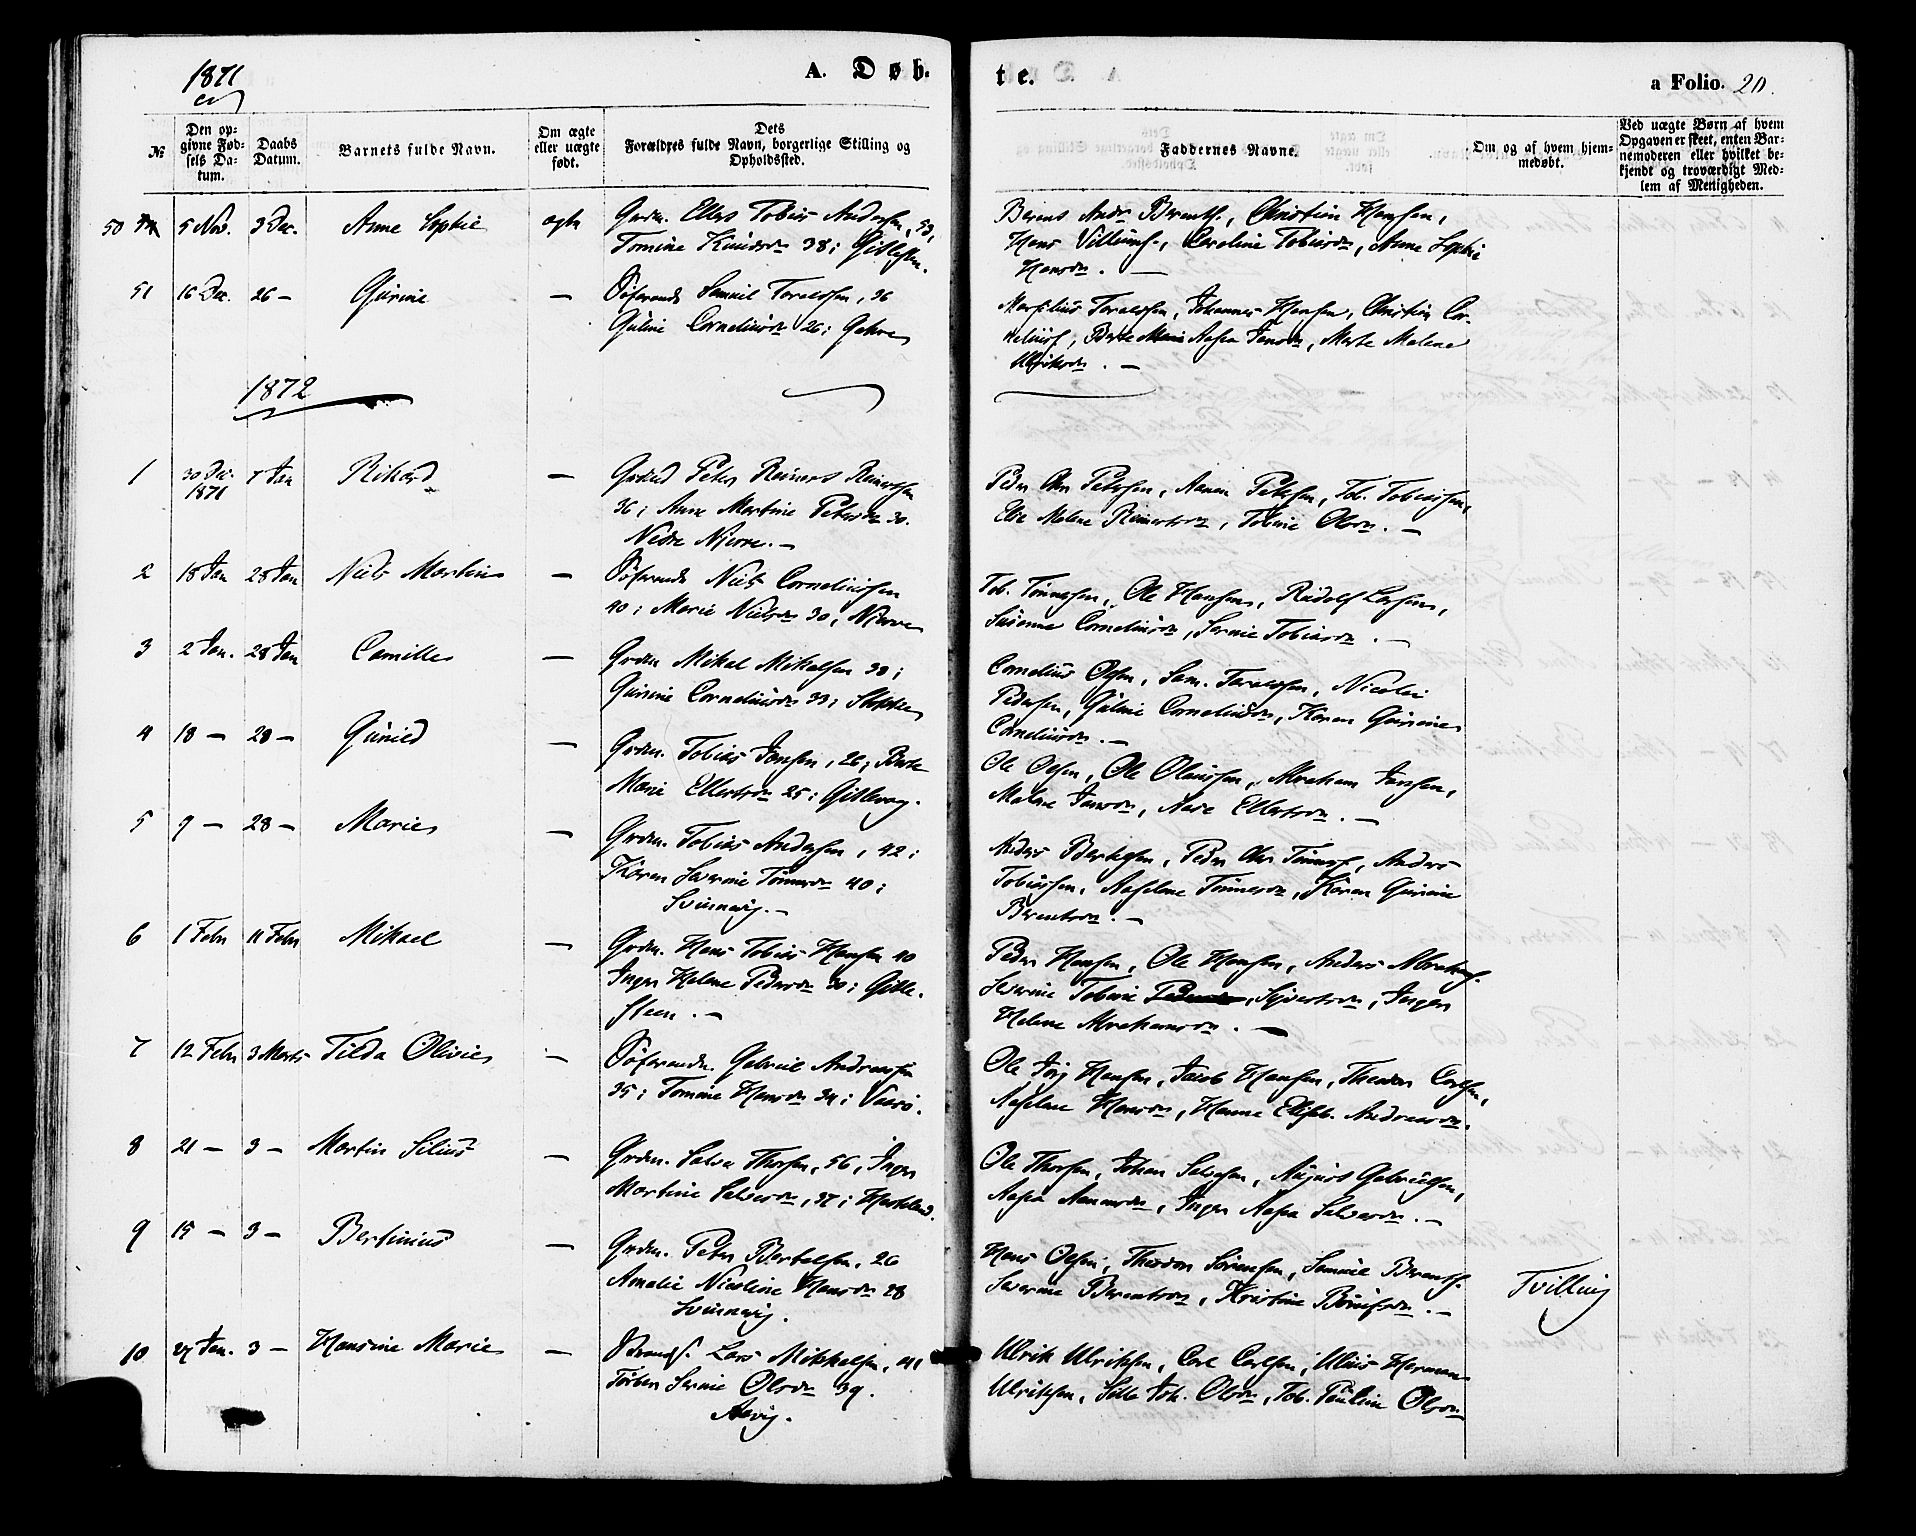 1871
A. Døb-
te.
a Folio. 20.
№
Den op-
givne Fød-
sels Da-
tum.
Daabs
Datum.
Barnets fulde Navn.
Om ægte
eller uægte
født.
Dets
Forældres fulde Navn, borgerlige Stilling og
Opholdssted.
Faddernes Navne.
Om og af hvem hjem-
medøbt.
Ved uægte Børn af hvem
Opgaven er skeet, enten Bar-
nemoderen eller hvilket be-
kjendt og troværdigt Med-
lem af Menigheden.
50 5 Nov. 3 Dec. Anne Sophie ægte Grdm. Ellers Tobias Andersen, 43,
Tomine Knudsdr 38;
Andr. Berents., Christian Hansen,
Hans Villums., Caroline Tobiasdr, Anne Sophie
Hansdr. —
51 16 Dec. 26 — Gurine — Søfarende Samuel Taraldsen, 36
Guline Corneliusdr 26;
Taraldsen, Johannes Hansen, Christian Cor-
neliuss, Berte Aasea Jensdr, Marte Malene
Ulriksdr. —
1872
1 30 Dec. 1871 7 Jan Rikard — Peter Reiners Reinertsen
36; Anne Martine Petersdr 30.
Nedre Njerve. —
Peder Chr Petersen, Aanen Petersen, Tob. Tobiassen,
Else Malene Reinertsdr, Tobine Olsdr. —
2 18 Jan 28 Jan Niels Martin — Søfarende Niels Corneliussen
40; Marie Nielsdr 30; Njerve
Tob. Tønnesen, Ole Hansen, Rudolf Larsen,
Susanne Corneliusdr, Serine Tobiasdr. —
3 2 Jan. 28 Jan Camilla — Grdm Mikal Mikalsen 38;
Gurine Corneliusdr 33;
Cornelius Olsen, Sam. Taraldsen, Nicolai
Pedersen, Guline Corneliusdr, Karen Gurine
Corneliusdr. —
4 18 — 28 — Gunild — Grdm. Tobias Jensen, 26; Berte
Marie Ellertsdr 25;
Ole Olsen, Ole Olaussen, Abraham Jensen,
Malene Jensdr, Ellertsdr. —
5 9 — 28 — Marie — Grdm. Tobias Andersen, 42;
Karen Severine Tønnesdr 40;
Svinevig. —
Anders Bertelsen, Peder Chr Tønness, Anders
Tobiassen, Aaselene Tønnesdr, Karen Gurine
Berentsdr. —
6 1 Febr 11 Febr Mikael — Grdm. Hans Tobias Hansen 40
Inger Helene Pedersdr 30; Gitle-
steen. —
Peder Hansen, Ole Hansen, Anders Abrahams.
Severine Tobine Syvertsdr, Inger
Helene Abrahamsdr. —
7 12 Febr 3 Marts Tilda Olivie — Søfarende. Gabriel Andreassen
35; Tomine Hansdr 34;
Ole Jørg Hansen, Jacob Hansen, Theodor Carlsen,
Aaselene Hansdr, Hanne Elisab. Andreasdr.
8 21 — 3 — Martin Silius — Grdm. Salve Thorsen, 56, Inger
Martine Salvesdr, 37;
Ole Thorsen, Johan Salvesen, August Gabrielsen,
Aasea Aanensdr, Inger Aasea Salvesdr. —
9 15 — 3 — Bertinius — Grdm. Peter Bertelsen, 26
Amalie Nicoline Hansdr 28
Svinevig.
Hans Olsen, Theodor Sørensen, Samuel Berents.
Severine Berentsdr, Kristine
Tvilling
10 27 Jan. 3 — Hansine Marie — Lars Mikkelsen, 41,
Torbor Serine Olsdr 39.
Aavig.
Ulrik Ulriksen, Carl Carlsen, Herman
Ulriksen, Joh. Olsdr, Tob. Pauline Olsdr